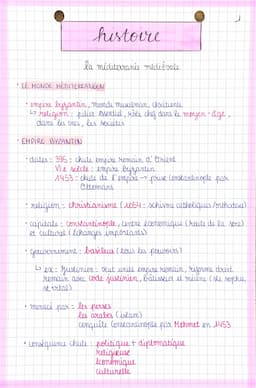 histoire
la méditerranée médiévale
• LE MONDE MÉDITERRANÉEN
• empire byzantin, monde musulman, chrétienté
↳ religion : pilier essentiel, rôle clef dans le moyen-âge,
dans les vies, les sociétés
• EMPIRE BYZANTIN
• dates : 395 : chute empire romain d'Orient
VIe siècle : empire byzantin
1453 : chute de l'empire → prise Constantinople par
Ottomans
• religion : christianisme (1054 : schisme catholiques/orthodoxe)
• capitale : constantinople, centre économique (route de la soie)
et culturel (échanges importants)
• gouvernement : basileus (tous les pouvoirs)
↳ ex : Justinien : veut unité empire romain, réforme droit
romain avec code justinien, bâtisseur et mécène (ste sophie,
st vital)
• menacé par : les perses
les arabes (islam)
conquête Constantinople par Mehmet en 1453
• conséquence chute : politique + diplomatique
religieuse
économique
culturelle